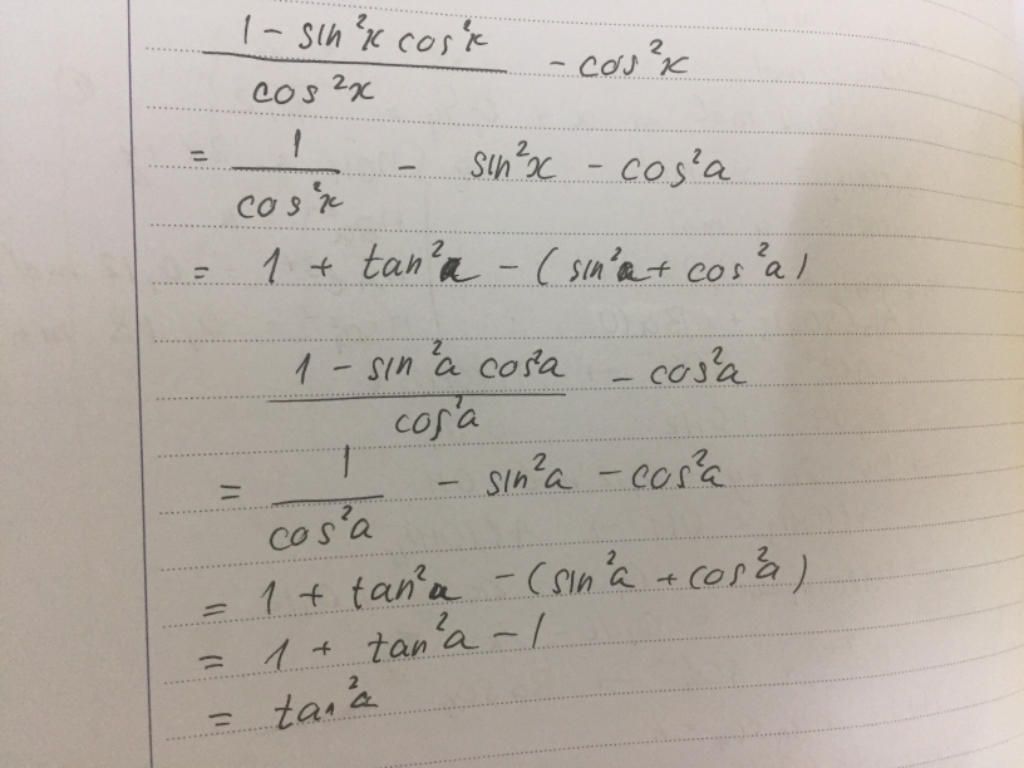 1 - sin²x cos²x
cos²x
- cos²x
= 1/cos²x - sin²x - cos²a
= 1 + tan²a - (sin²a + cos²a)
1 - sin²a cos²a
cos²a
- cos²a
= 1/cos²a - sin²a - cos²a
= 1 + tan²a - (sin²a + cos²a)
= 1 + tan²a - 1
= tan²a